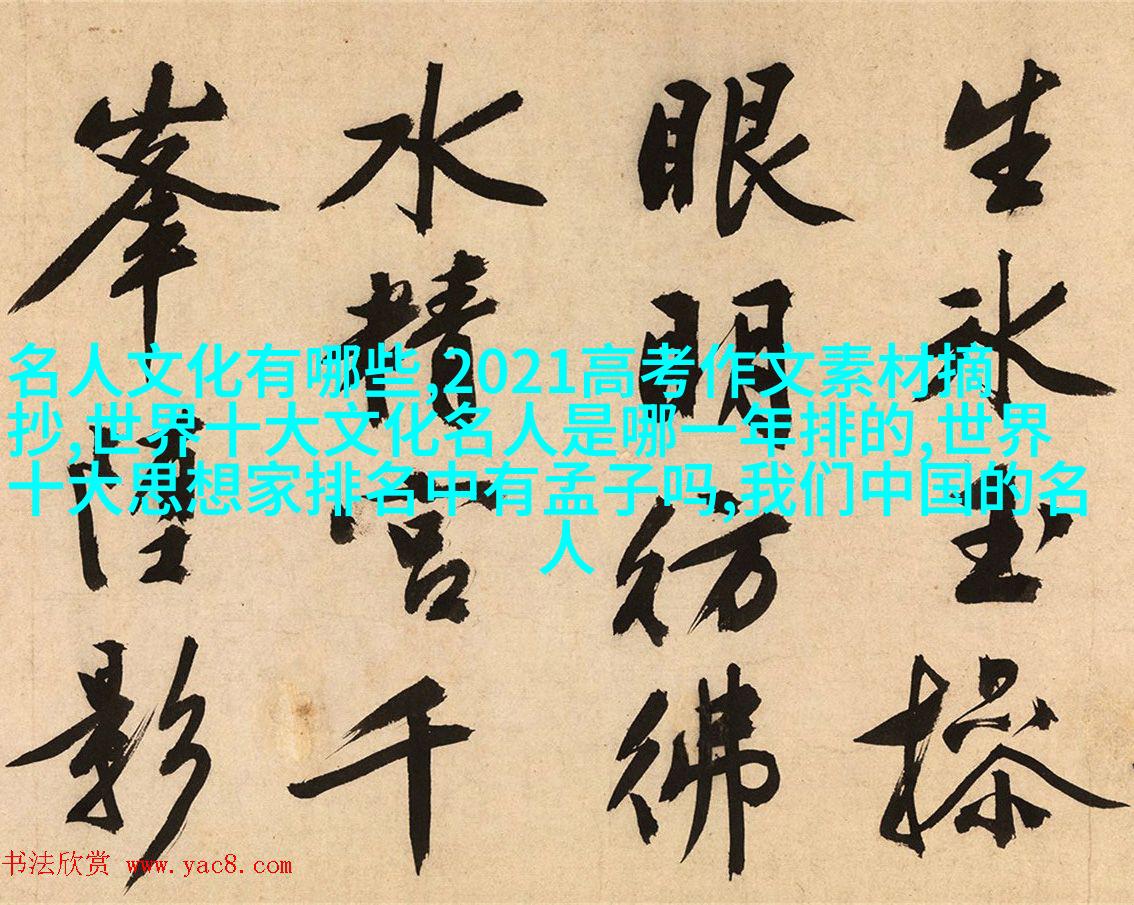 生冰玉操
眼明彷彿
水精宮千
峯影
名人文化有哪些,2021高考作文素材摘
抄,世界十大文化名人是哪一年排的,世界
十大思想家排名中有孟子吗,我们中国的名
人
书法欣赏 www.yac8.com